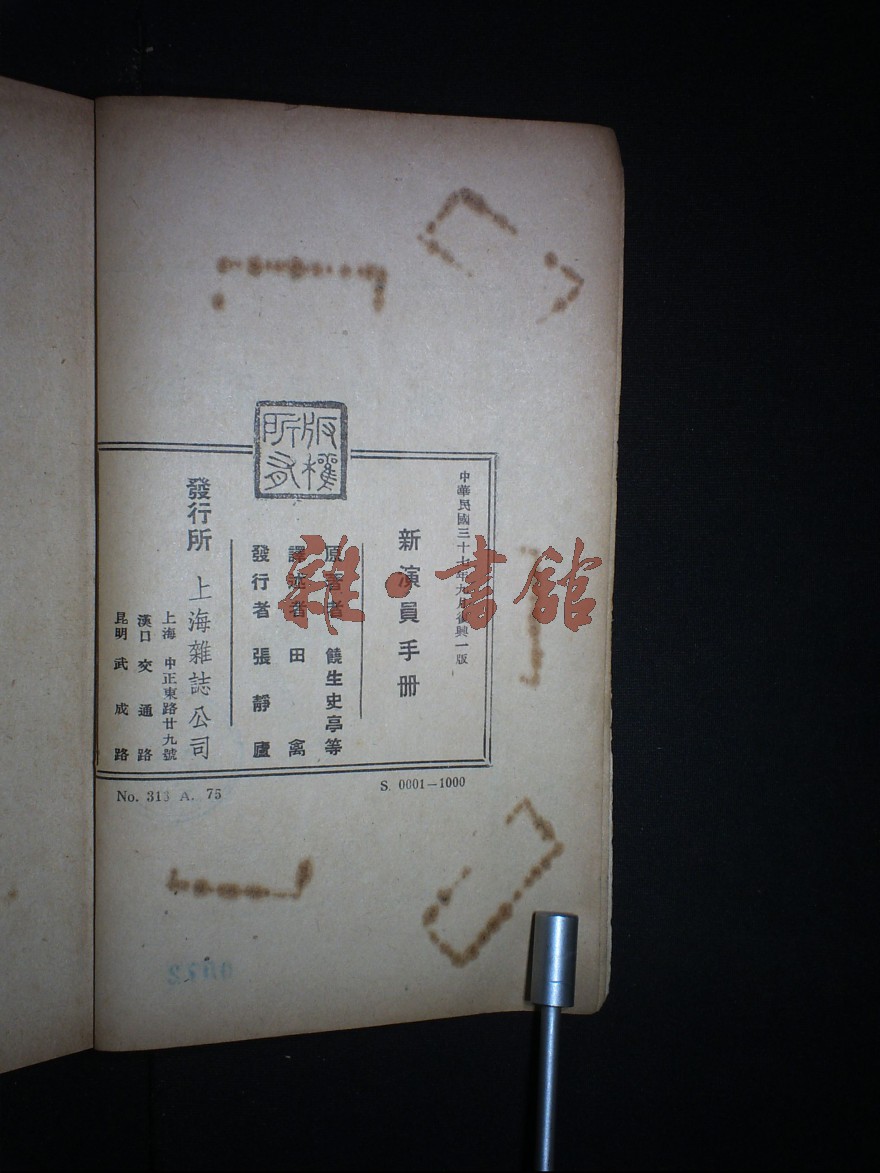 版權所有
中華民國三十七年九月復興一版
新演員手冊
原著者 饒生史亭等
譯述者 田禽
發行者 張靜廬
發行所 上海雜誌公司
上海 中正東路廿九號
漢口 交通路
昆明 武成路
S. 0001—1000
No. 313 A. 75
雜·書館